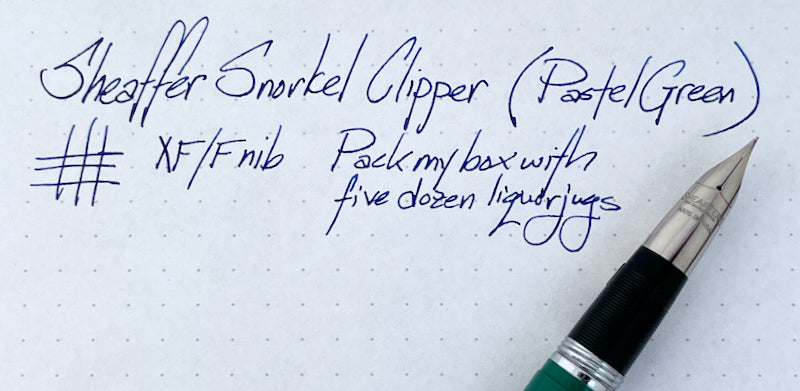 Sheaffer Snorkel Clipper (Pastel Green)
XF/F nib Pack my box with
five dozen liquor jugs
SHEAFFER'S